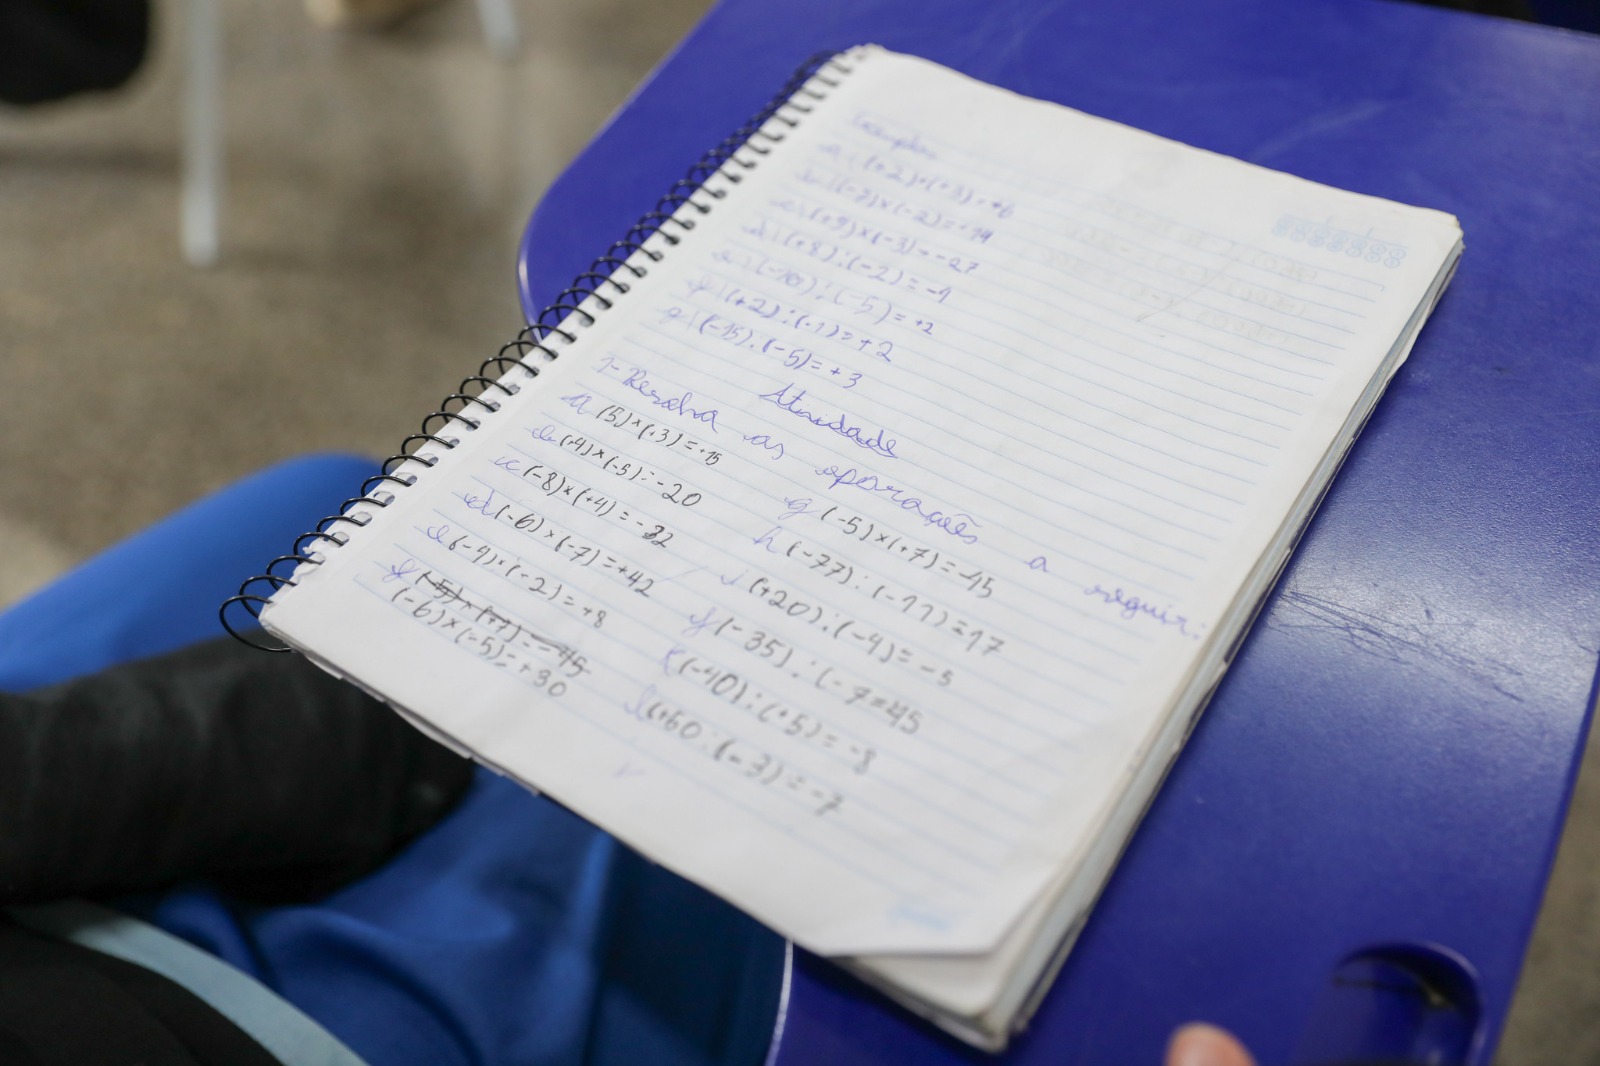 Exemplos
a) (+2)×(+3)=+6
b) (-7)×(-2)=+14
c) (+9)×(-3)=-27
d) (+8):(-2)=-4
e) (-10):(-5)=+2
f) (+2):(+1)=+2
g) (-15):(-5)=+3
Atividade
1- Resolva as operações a seguir:
a (5)×(+3)=+15
b (+4)×(-5)=-20
c (-8)×(+4)=-32
d (-6)×(-7)=+42
e (-4)×(-2)=+8
f (-5)×(+7)=-45
(-6)×(-5)=+30
g (-5)×(+7)=-45
h (-77):(-11)=17
i (+20):(-4)=-5
j (-35):(-7=45
k (-40):(+5)=-8
l (+60:(-3)=-7